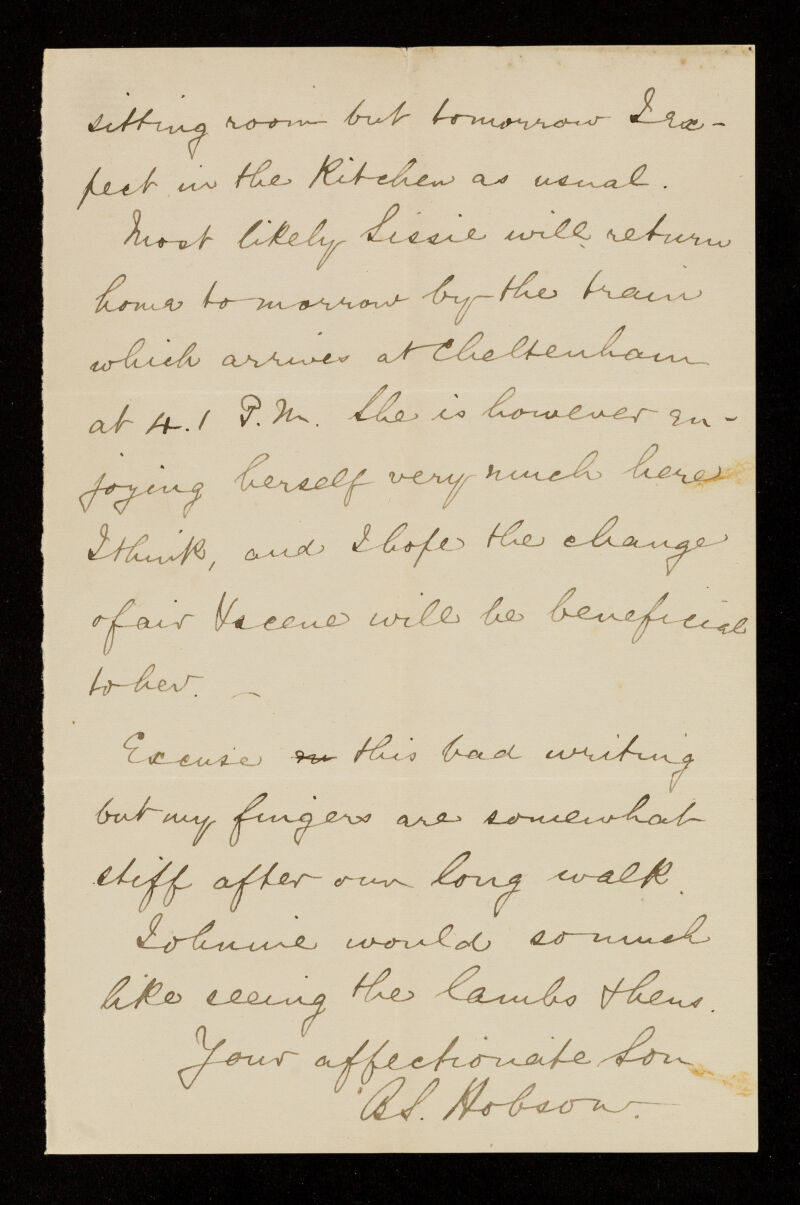 sitting room but tomorrow I ex-
pect in the Kitchen as usual.
Most likely Sissie will return
home tomorrow by the train
which arrives at Cheltenham
at 4.1 P.M. She is however en-
joying herself very much here
I think, and I hope the change
of air & scene will be beneficial
to her. —
Excuse en this bad writing
but my fingers are somewhat
stiff after our long walk.
Johnnie would so much
like seeing the lambs & hens.
Your affectionate Son
BS. Hobson.